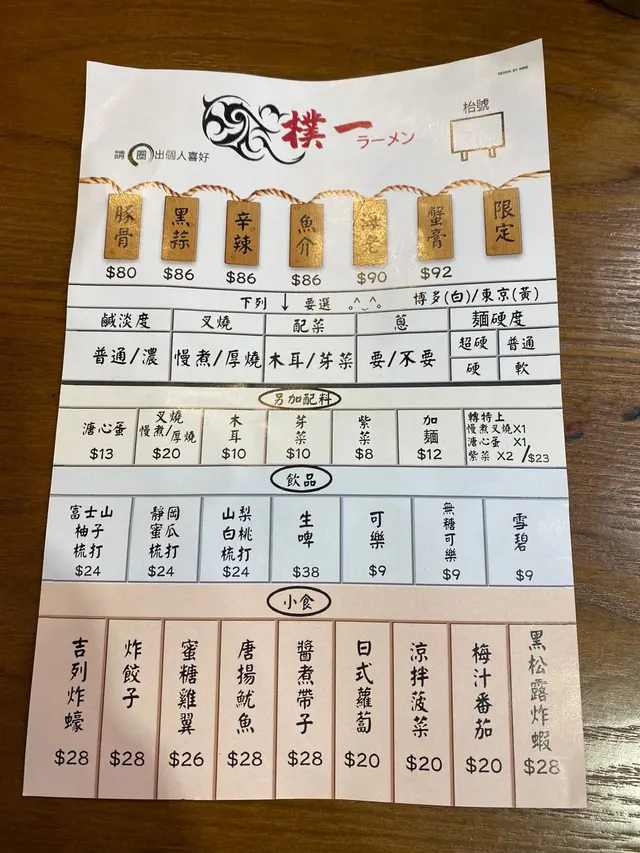 DESIGN BY KING
樸一
ラーメン
枱號
請圈出個人喜好
豚骨 黑蒜 辛辣 魚介 海老 蟹膏 限定
$80 $86 $86 $86 $90 $92
下列↓要選 博多(白)/東京(黃)
鹹淡度 叉燒 配菜 蔥 麵硬度
普通/濃 慢煮/厚燒 木耳/芽菜 要/不要 超硬 普通
硬 軟
另加配料
溏心蛋 $13
叉燒 慢煮/厚燒 $20
木耳 $10
芽菜 $10
紫菜 $8
加麵 $12
轉特上
慢煮叉燒X1
溏心蛋 X1
紫菜 X2 /$23
飲品
富士山柚子梳打 $24
靜岡蜜瓜梳打 $24
山梨白桃梳打 $24
生啤 $38
可樂 $9
無糖可樂 $9
雪碧 $9
小食
吉列炸蠔 $28
炸餃子 $28
蜜糖雞翼 $26
唐揚魷魚 $28
醬煮帶子 $28
日式蘿蔔 $20
涼拌菠菜 $20
梅汁番茄 $20
黑松露炸蝦 $28